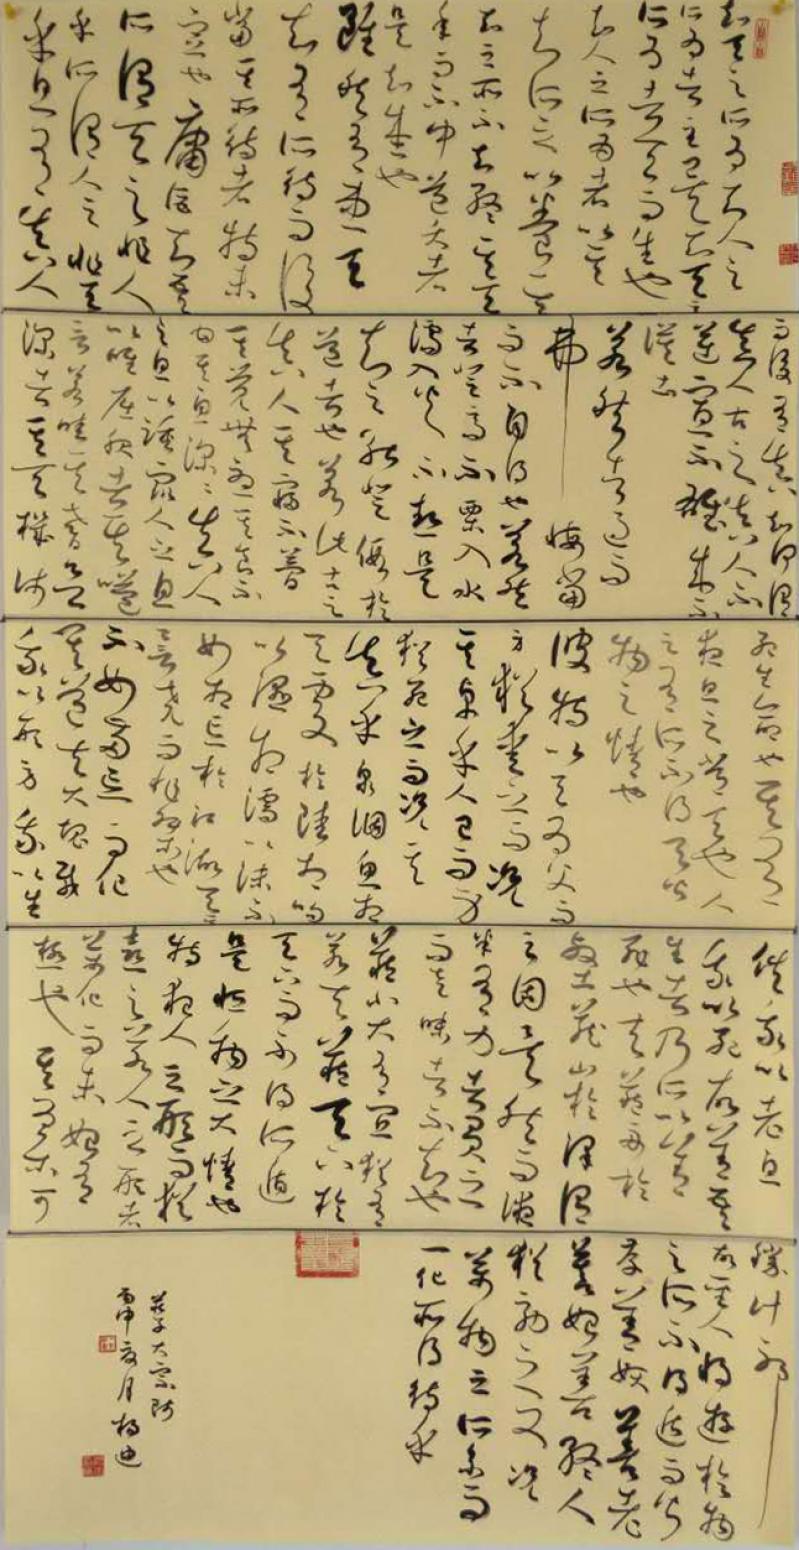 知天之所為知人之
所為者至已矣知天之
所為者天而生也
知人之所為者以其
知所知以養其
知之所不知終其天
年而不中道夭者
是知盛也
雖然有患夫
知有所待而後
當其所待者特未
定也庸詎知吾
所謂天之非人
乎所謂人之非天
乎且有真人
而後有真知何謂
真人古之真人不
逆寡不雄成不
謨士
若然者過而
弗悔當
而不自得也若然
者登高不栗入水
濡入火不熱是
知之能登假於
道者也若此古之
真人其寢不夢
其覺無憂其食不
甘其息深深真人
之息以踵眾人之息
以喉屈服者其嗌
言若哇其耆欲
深者其天機淺
死生命也其有
夜旦之常天也人
之有所不得與皆
物之情也
彼特以天為父而
身猶愛之而況
其卓乎人 而身
猶死之而況其
真乎泉涸魚相
與處於陸相呴
以濕相濡以沫不
如相忘於江湖與其
譽堯而非桀也
不如兩忘而化
其道夫大塊載
我以形勞我以生
佚我以老息
我以死故善吾
生者乃所以善吾
死也夫藏舟於
壑藏山於澤謂
之固矣然而夜
半有力者負之
而走昧者不知也
藏小大有宜猶有
若夫藏天下於
天下而不得所遁
是恆物之大情也
特犯人之形而猶
喜之若人之形者
萬化而未始有
極也其為樂可
勝計邪
故聖人將遊於物
之所不得遁而皆
存善妖善老
善始善終人
猶效之又況
萬物之所係而
一化所待乎
莊子大宗師
丙申夏月楊迪